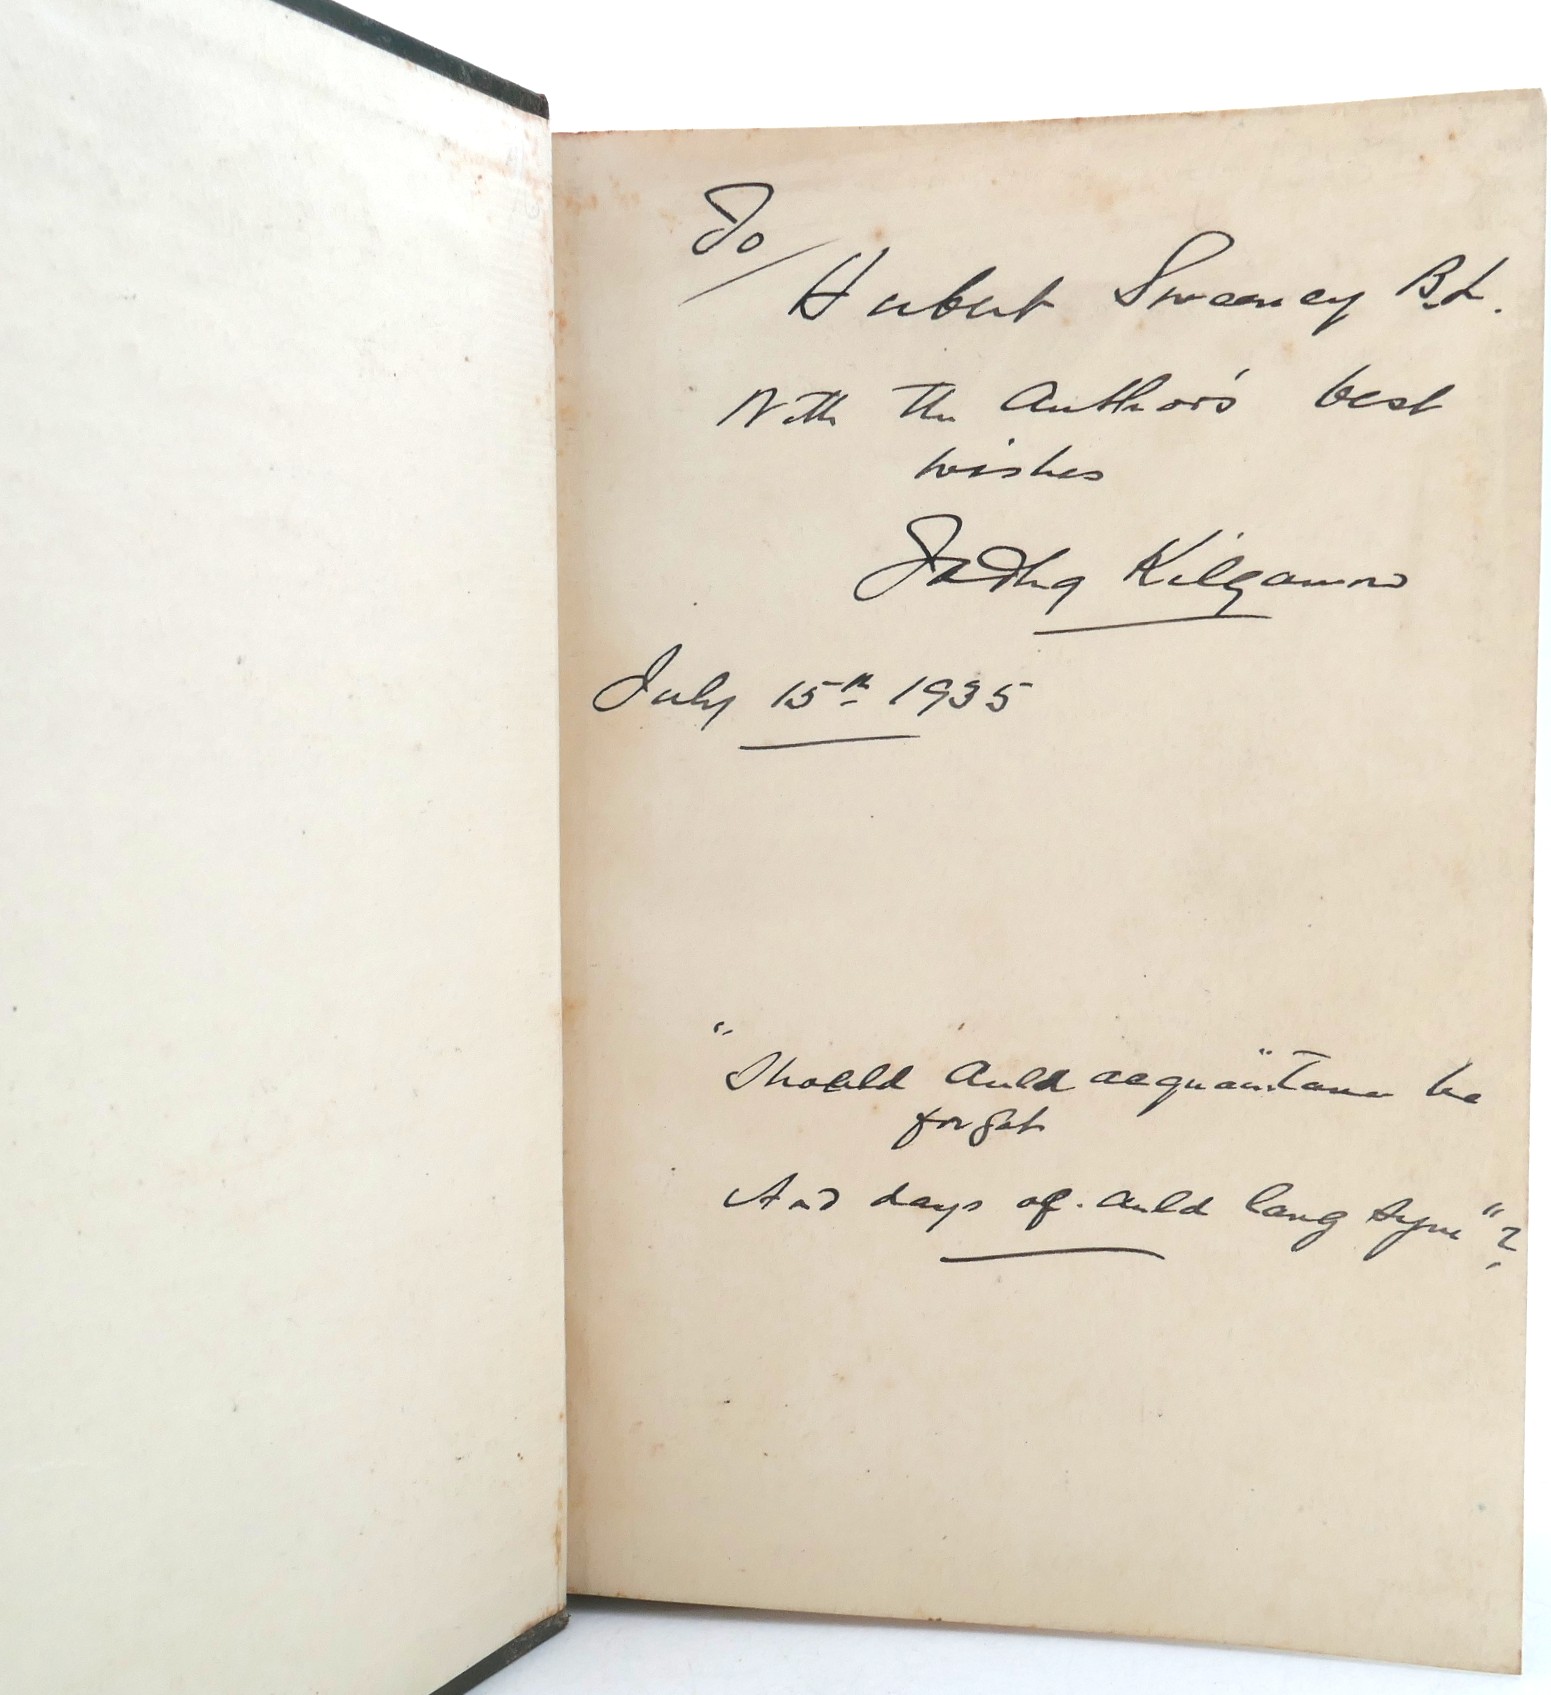 To/
Herbert Sweeney B.L.
With the Author's best
wishes
Tadhg Kilgannon
July 15th 1935
"Should auld acquaintance be
forget
And days of auld lang syne"?